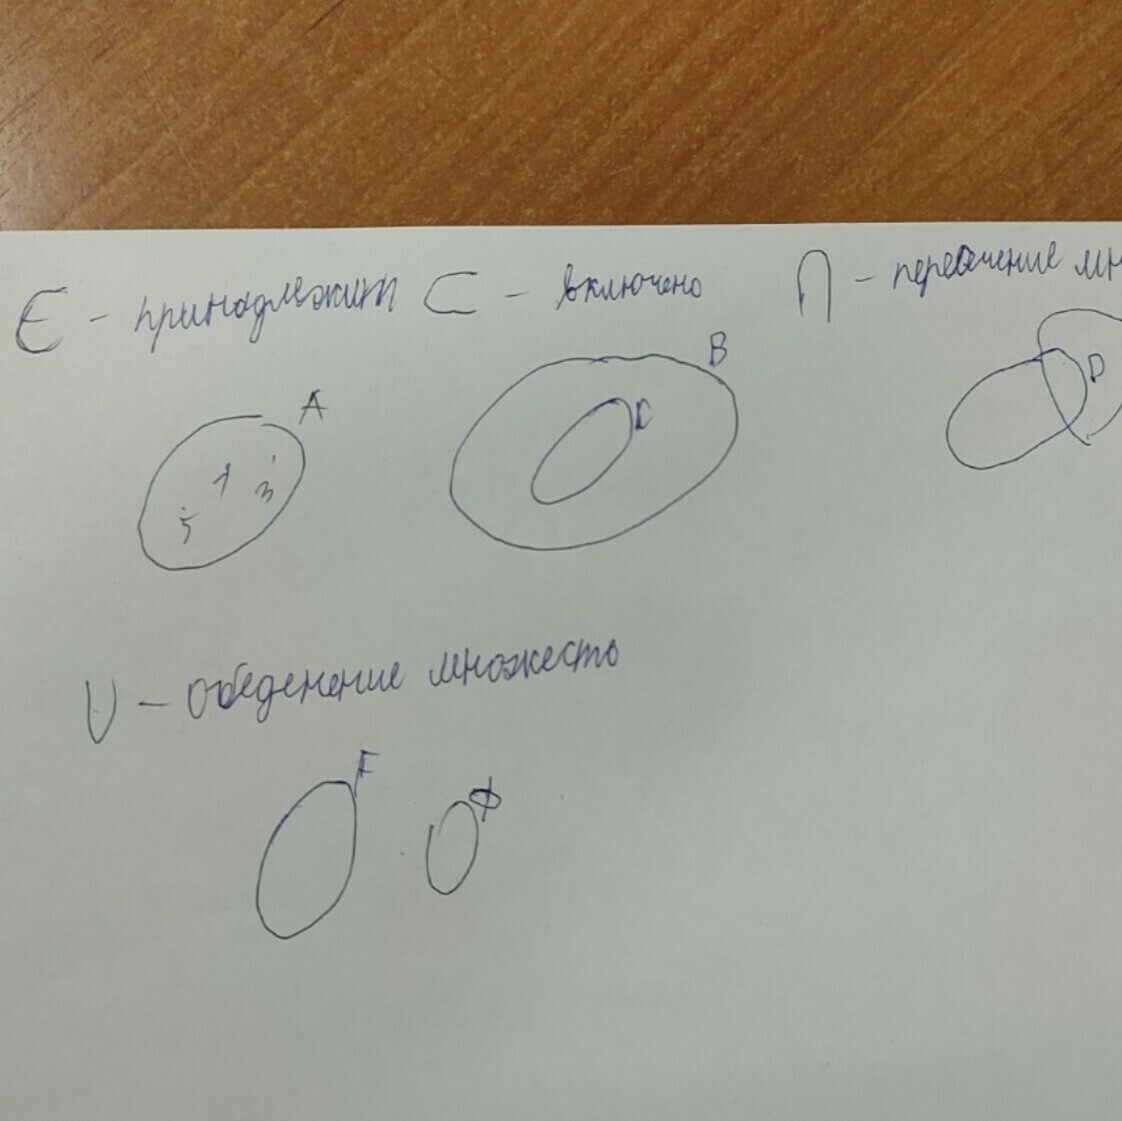 ∈ - принадлежит ⊂ - включено ∩ - пересечение мн
A B
D
1 3
5
U - обеденение множесть
F Ф